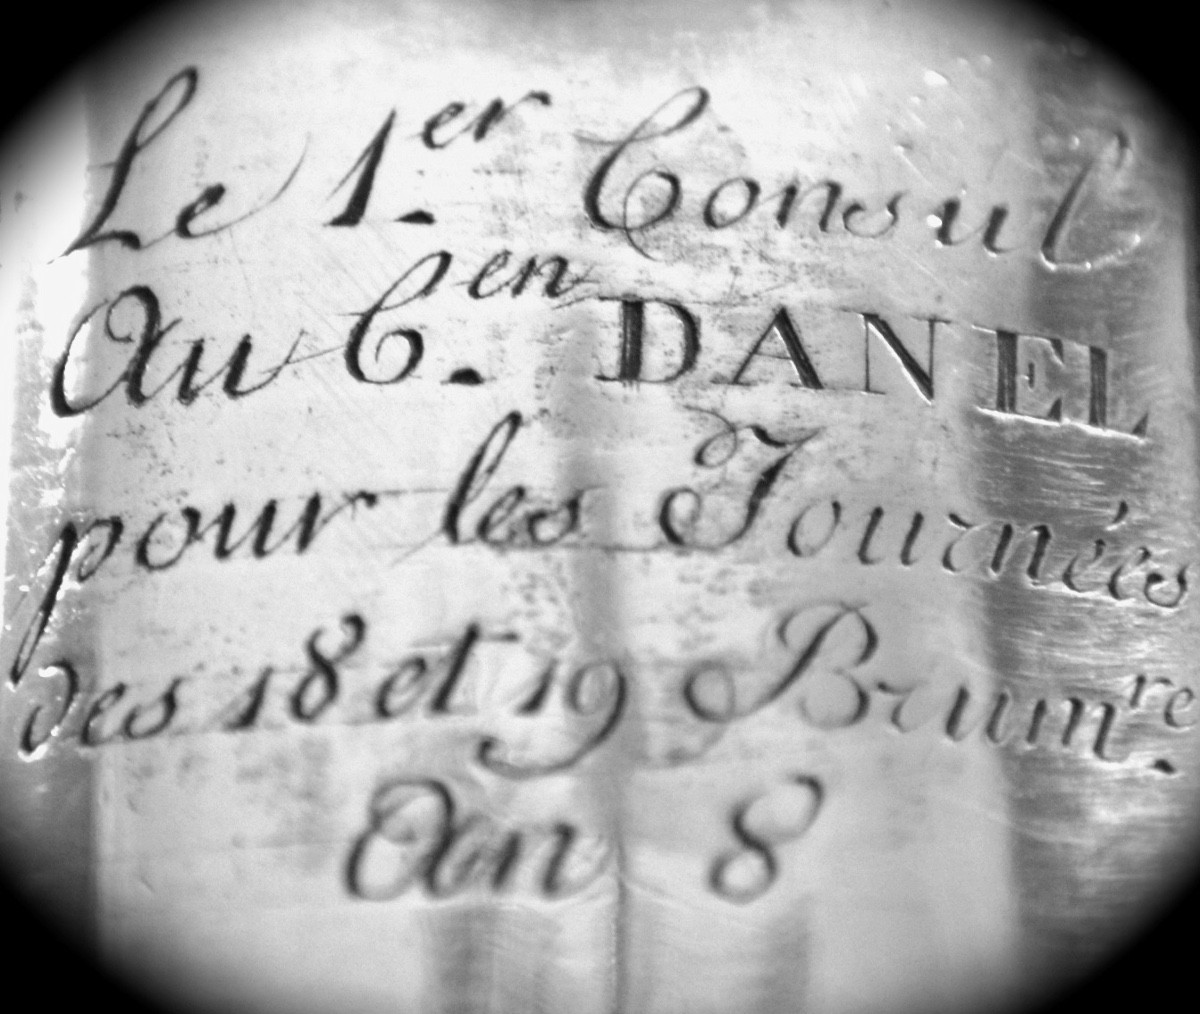 Le 1.er Consul
Au C.en DANEL
pour les Journées
des 18 et 19 Brum.re
An 8